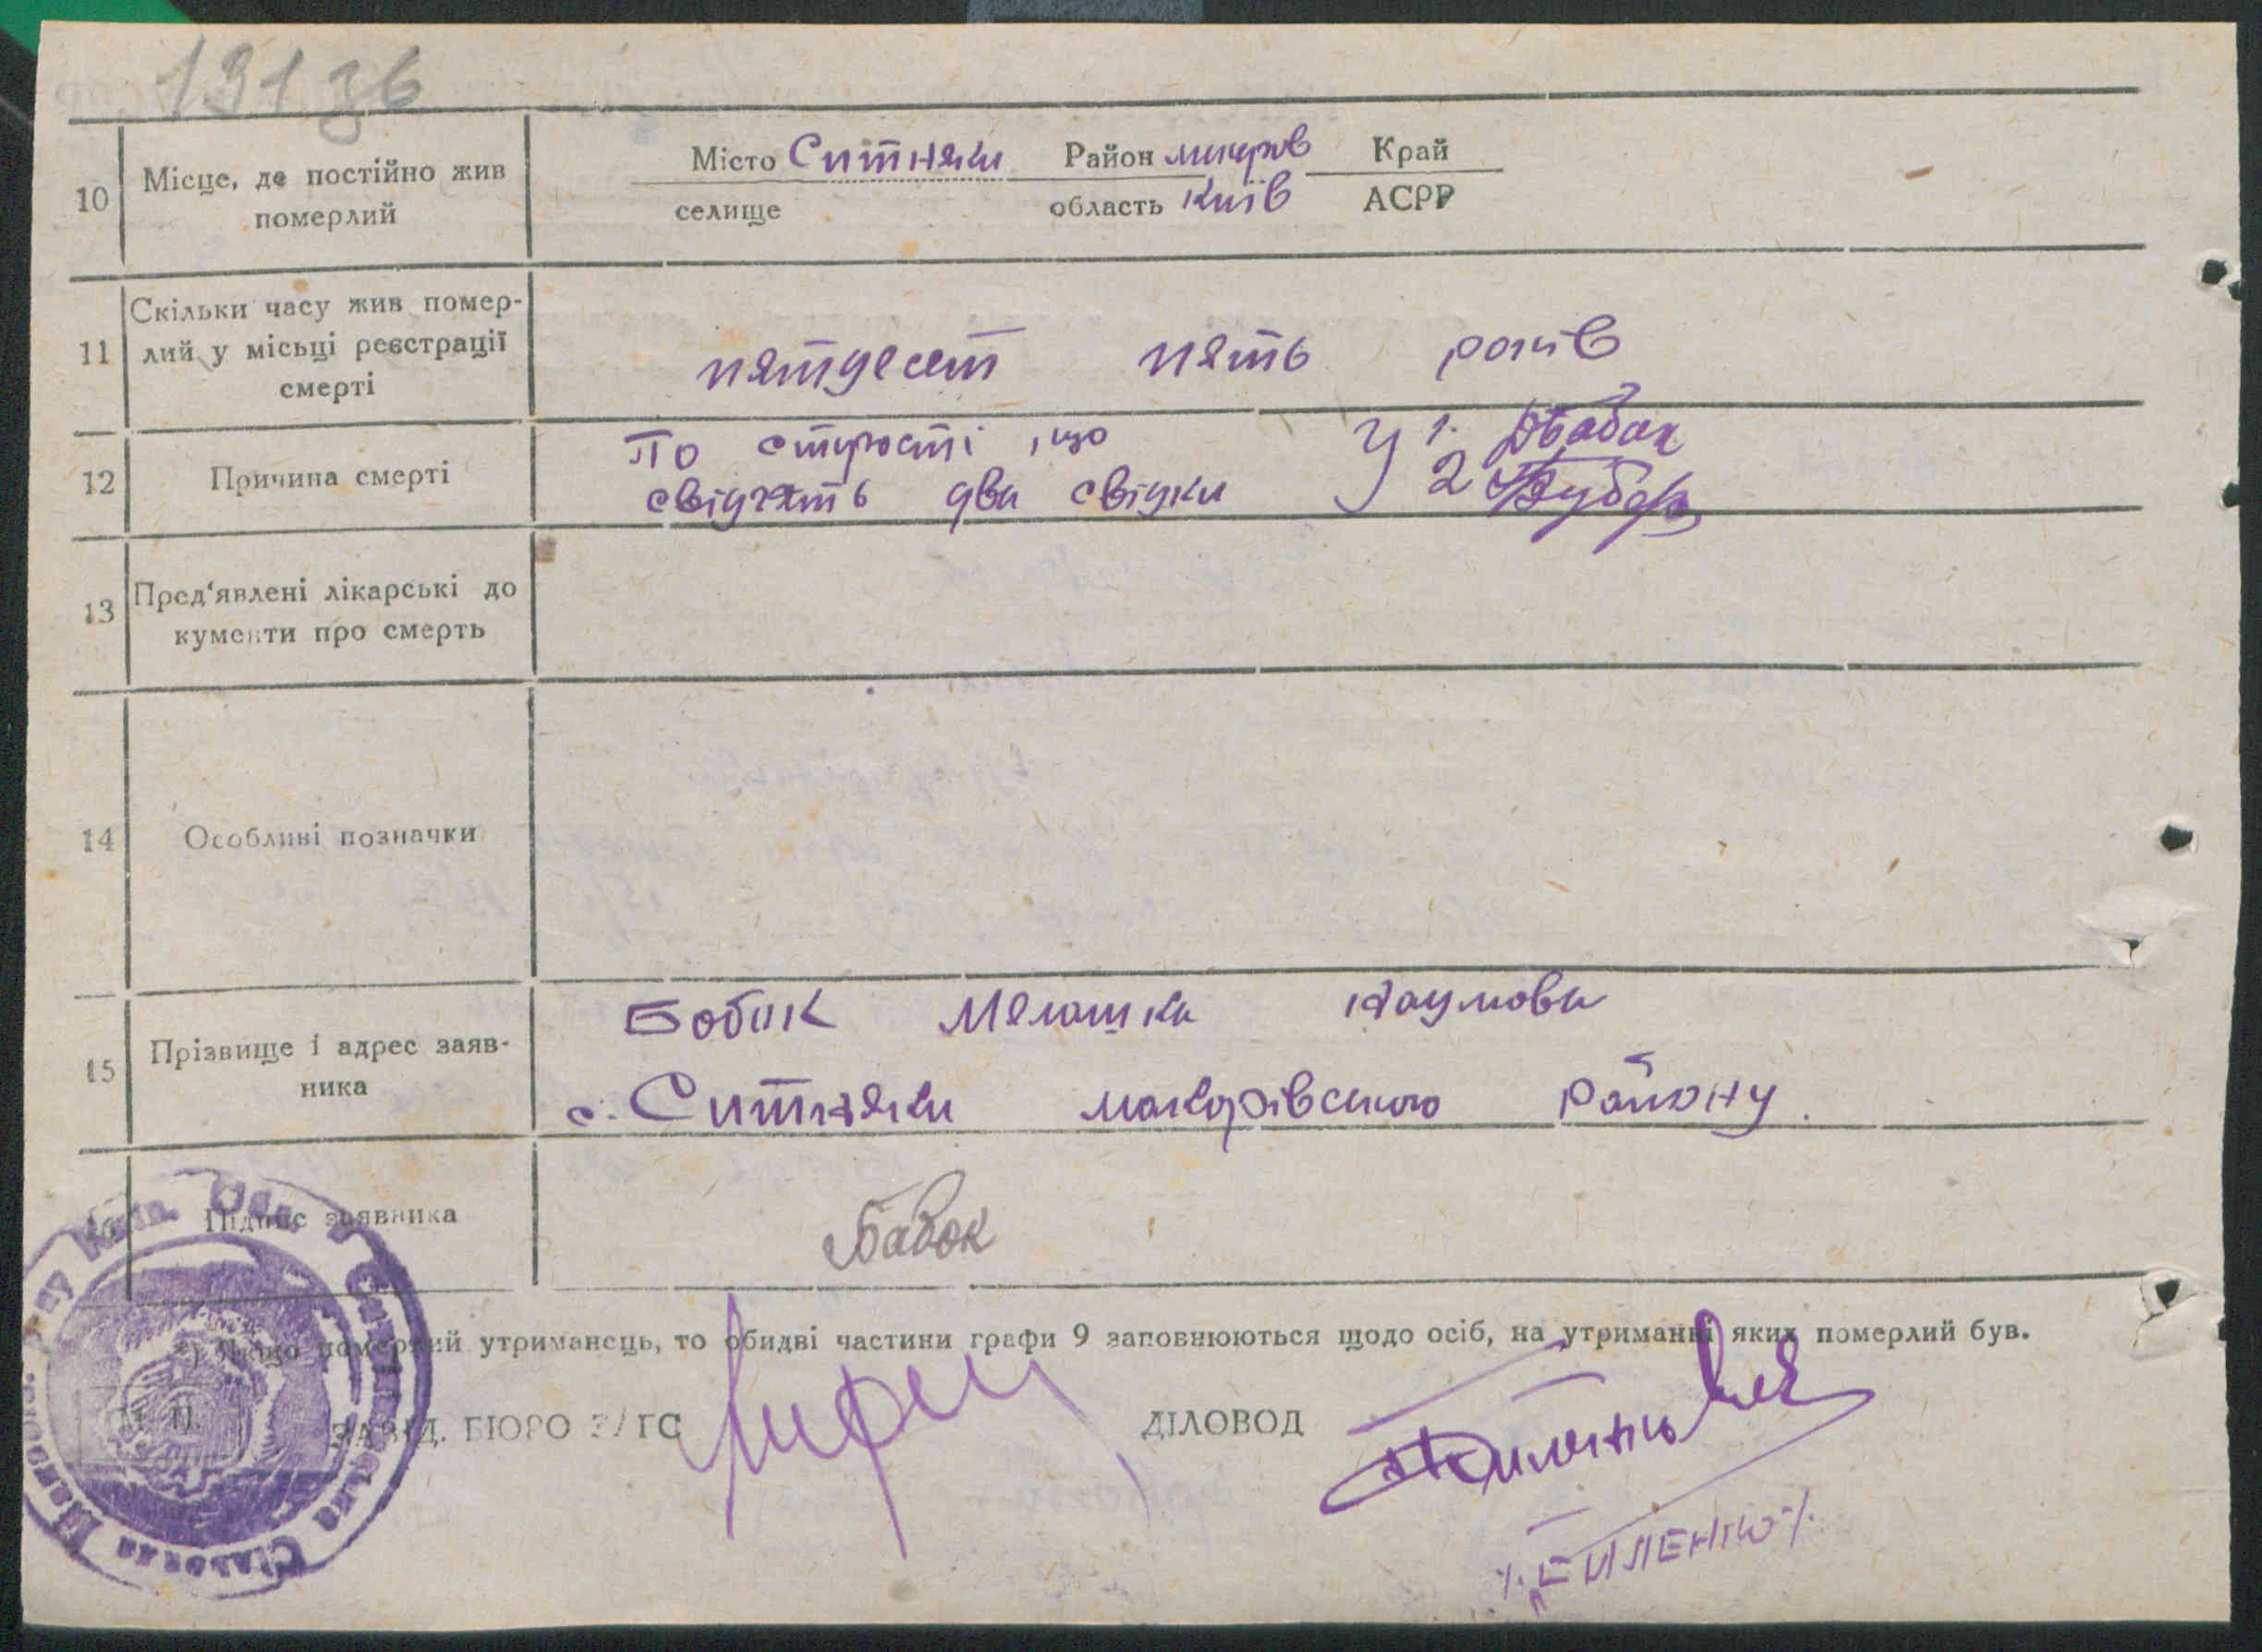 131 зв
10 Місце, де постійно жив померлий
Місто Ситняки Район макаров Край
селище область Київ АСРР
11 Скільки часу жив помер-
лий у місьці реєстрації
смерті
пятдесят пять років
12 Причина смерті
По старості, що
свідчать два свідки
У 1. Бабак
2
13 Пред'явлені лікарські до
кументи про смерть
14 Особливі позначки
15 Прізвище і адрес заяв-
ника
Бобик Мелашка Наумова
с. Ситняки макарівського району.
16 Підпис заявника
Бабок
*) Якщо померлий утриманець, то обидві частини графи 9 заповнюються щодо осіб, на утриманні яких померлий був.
М. П.
ЗАВІД. БЮРО ЗАГС
ДІЛОВОД